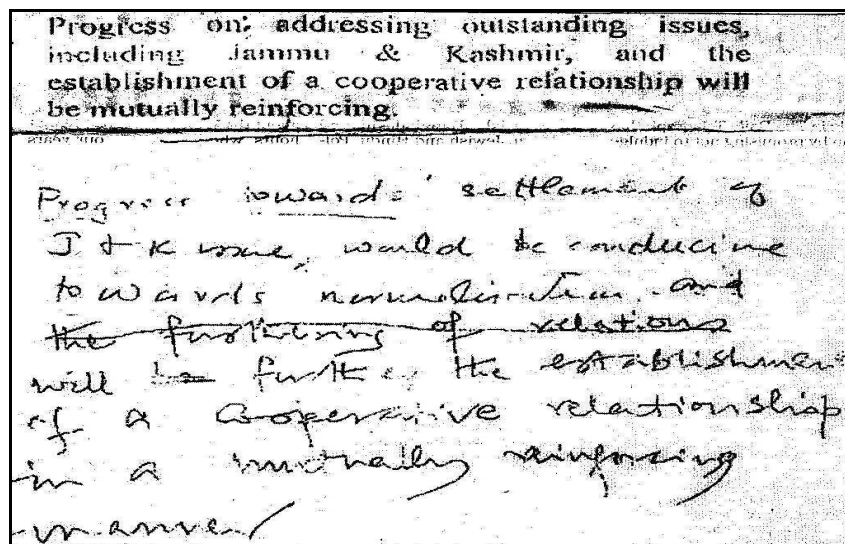 Progress on: addressing outstanding issues,
including Jammu & Kashmir, and the
establishment of a cooperative relationship will
be mutually reinforcing.
our years
Progress towards settlement of
J & K issue, would be conducive
towards normalisation and
the furthering of relations
will be further the establishmen
of a cooperative relationship
in a mutually reinforcing
manner